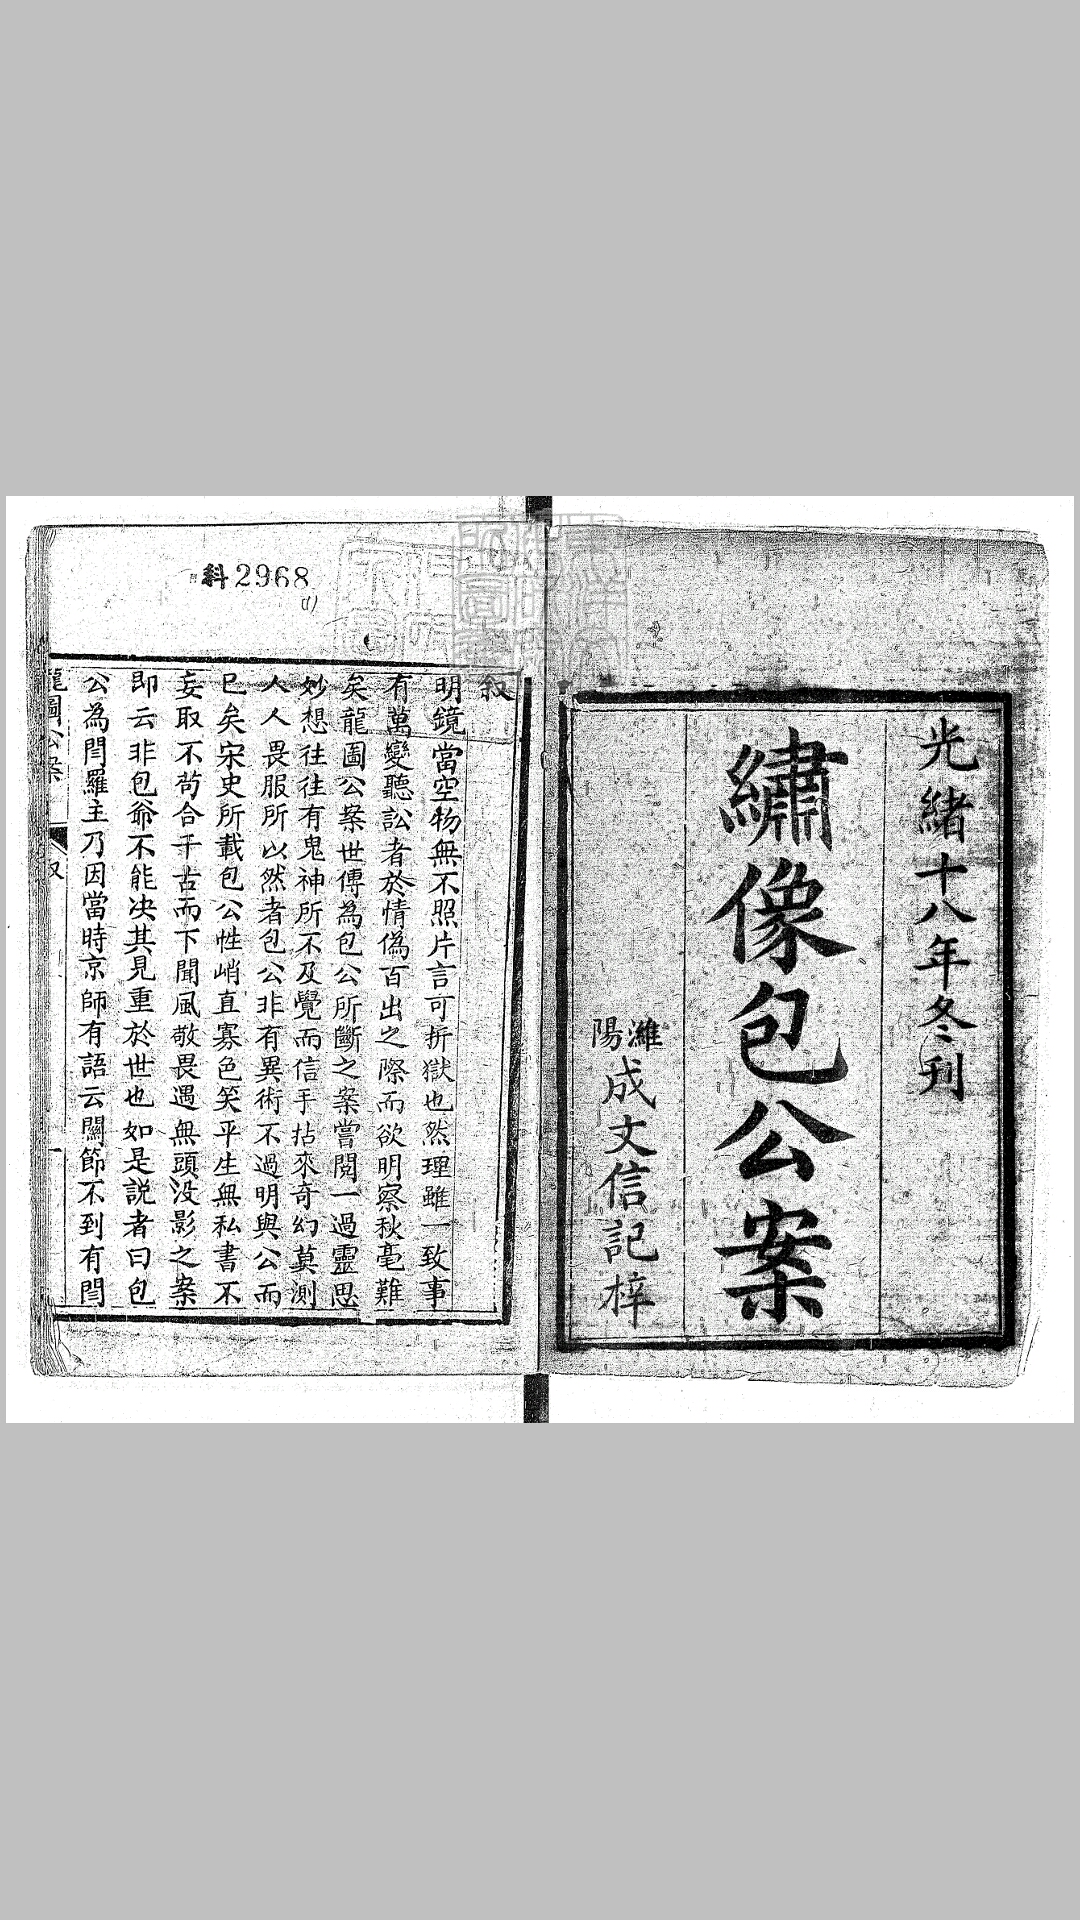 光緒十八年冬刋
繡像包公案
濰陽成文信記梓
科2968
(1)
叙
明鏡當空物無不照片言可折獄也然理雖一致事
有萬變聽訟者於情偽百出之際而欲明察秋毫難
矣龍圖公案世傳為包公所斷之案嘗閱一過靈思
妙想往往有鬼神所不及覺而信手拈來奇幻莫測
人人畏服所以然者包公非有異術不過明與公而
已矣宋史所載包公性峭直寡色笑平生無私書不
妄取不苟合千古而下聞風敬畏遇無頭没影之案
即云非包爺不能决其見重於世也如是説者曰包
公為閆羅主乃因當時京師有語云關節不到有閆
龍圖公案
叙